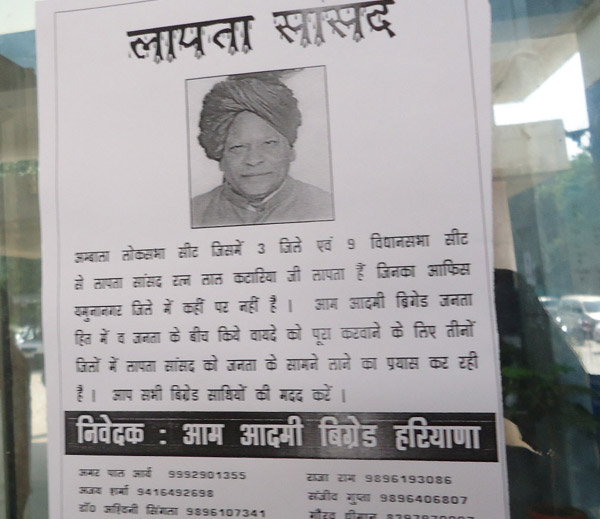 लापता सांसद
अम्बाला लोकसभा सीट जिसमें 3 जिले एवं 9 विधानसभा सीट
से लापता सांसद रत्न लाल कटारिया जी लापता हैं जिनका आफिस
यमुनानगर जिले में कहीं पर नहीं है । आम आदमी ब्रिगेड जनता
हित में व जनता के बीच किये वायदे को पूरा करवाने के लिए तीनों
जिलों में लापता सांसद को जनता के सामने लाने का प्रयास कर रही
है । आप सभी ब्रिगेड साथियों की मदद करें ।
निवेदक : आम आदमी बिग्रेड हरियाणा
अमर पाल आर्य 9992901355
राजा राम 9896193086
अजय शर्मा 9416492698
संजीव गुप्ता 9896406807
डॉ० अश्विनी सिंगला 9896107341
गौरव धीमान